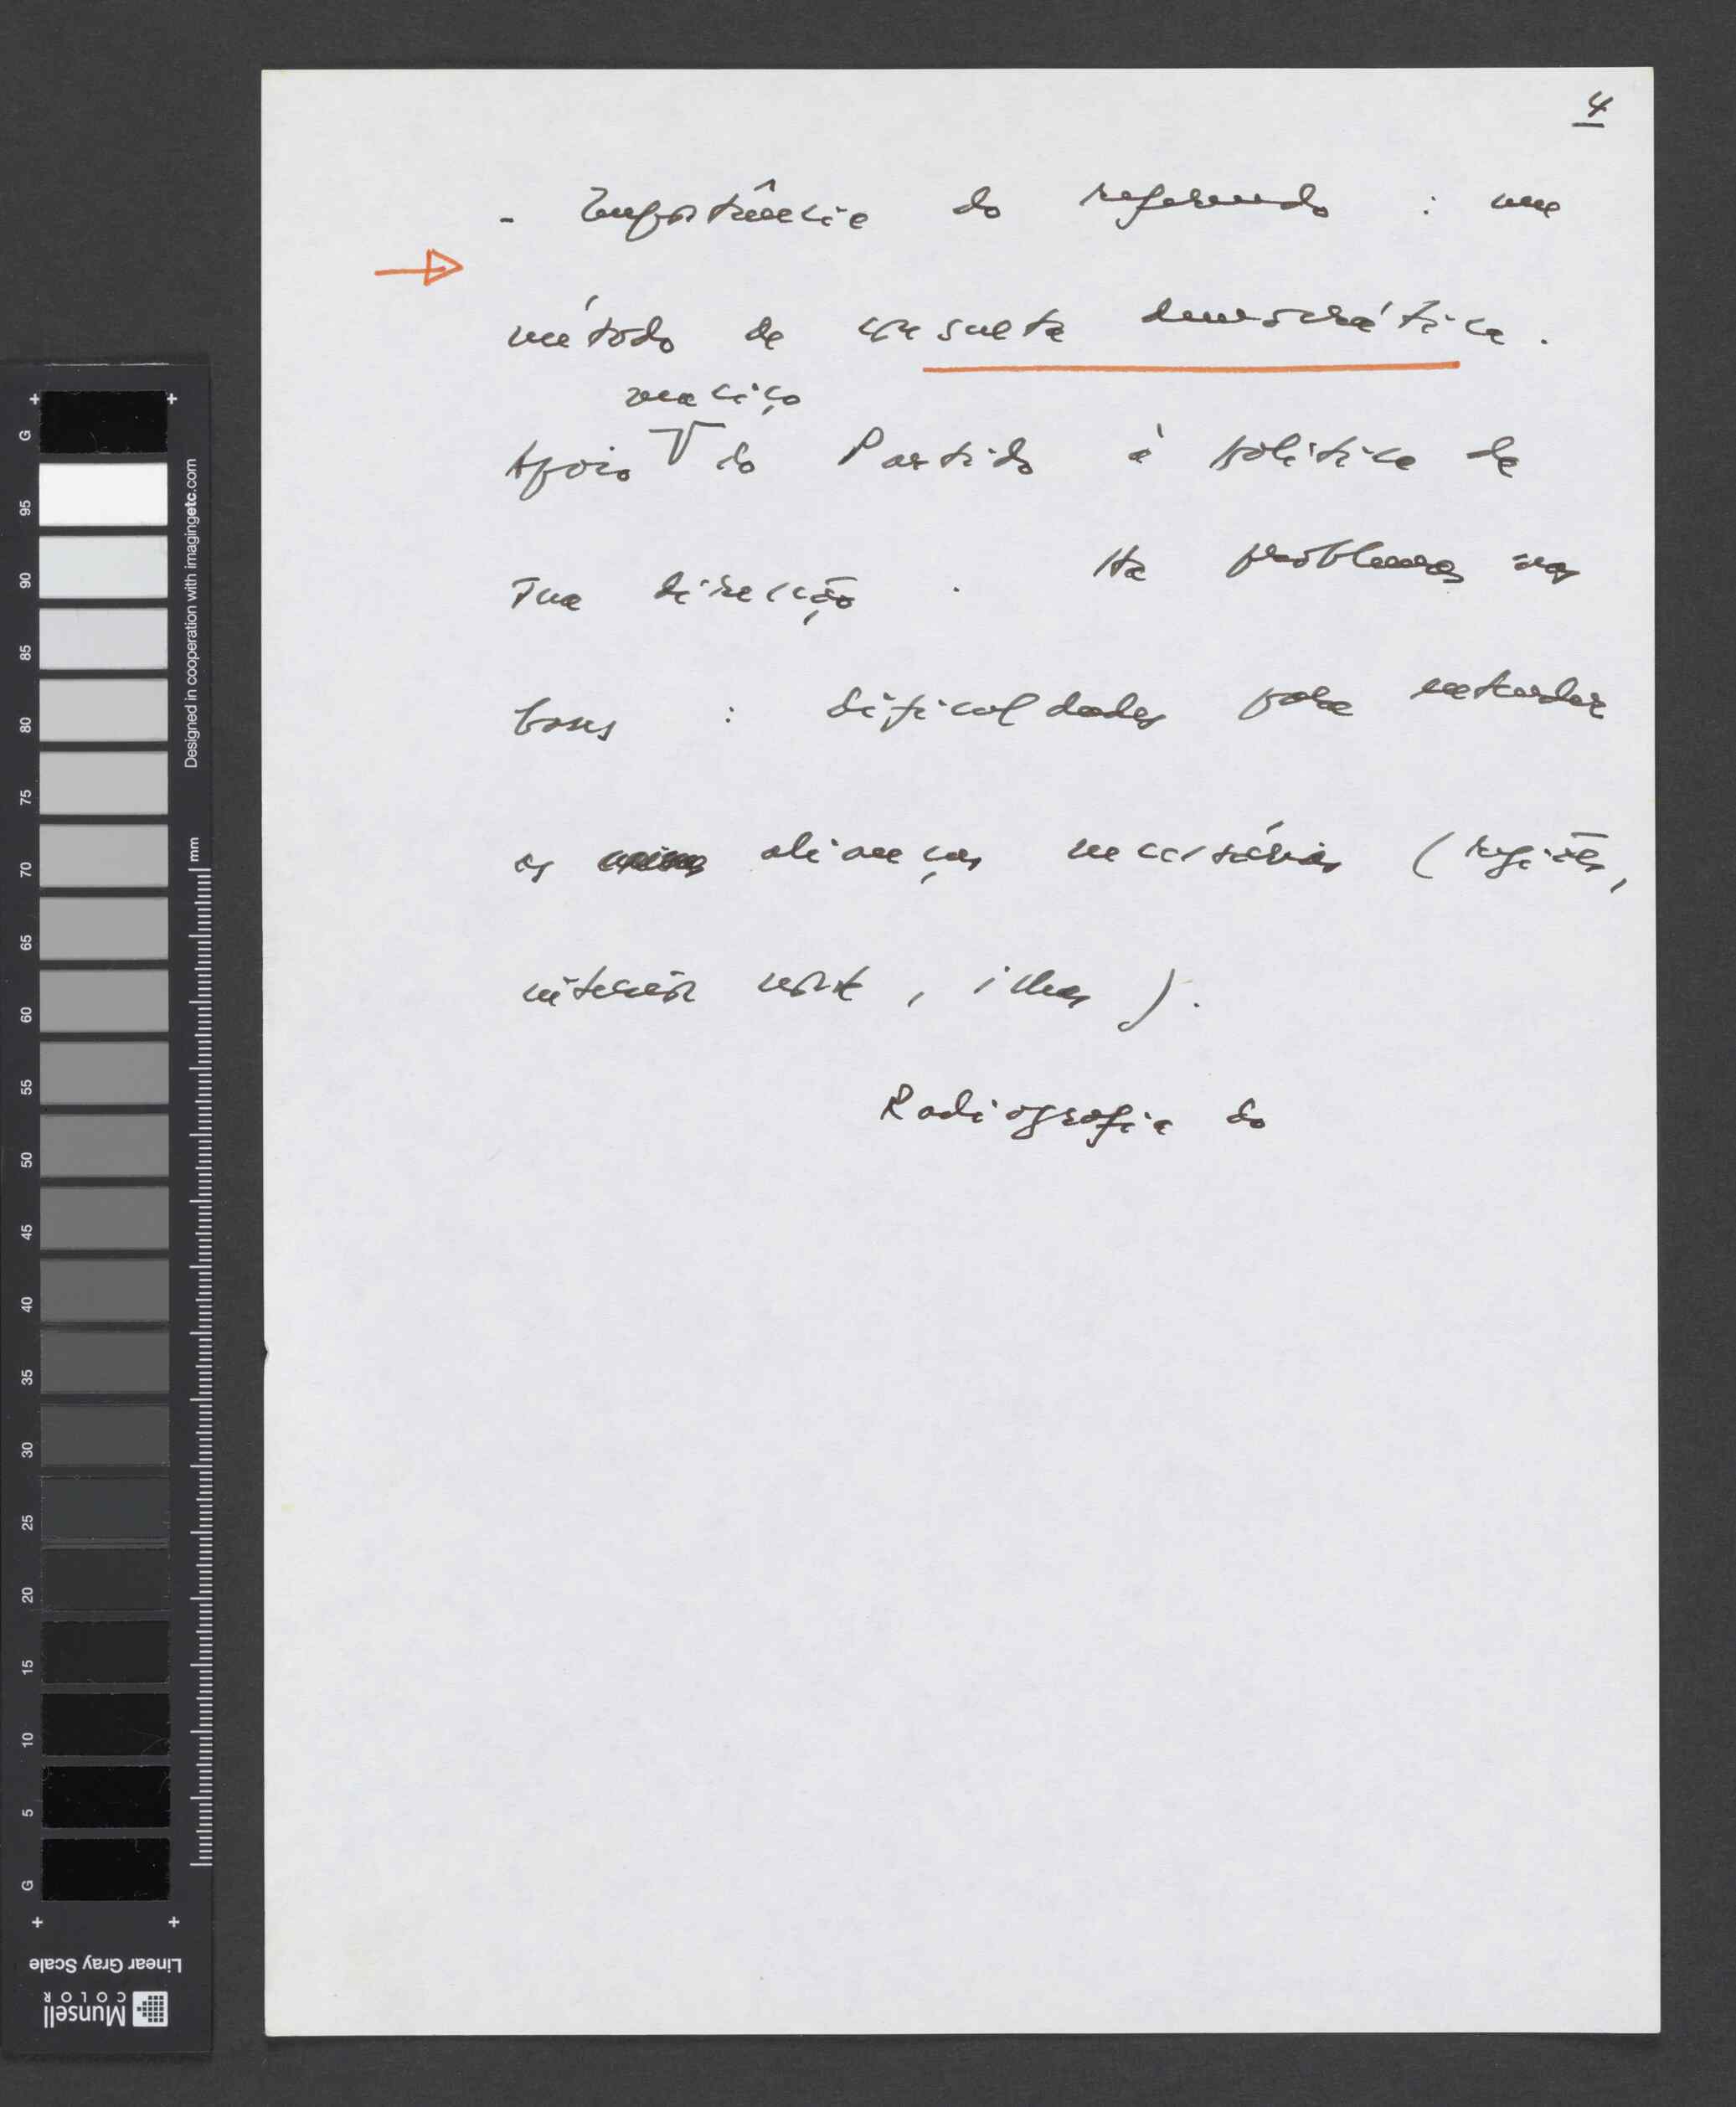 4
- Importância do referendo : um
método de consulta democrática.
maciço
Apoio do Partido à política da
sua direcção. Há problemas nas
bases : dificuldades para entender
as alianças necessárias (regiões,
interior norte, ilhas).
Radiografia do
G 95 90 85 80 75 70 65 60 55 50 45 40 35 30 25 20 15 10 5 G
Designed in cooperation with imagingetc.com
mm
Linear Gray Scale
Munsell
COLOR